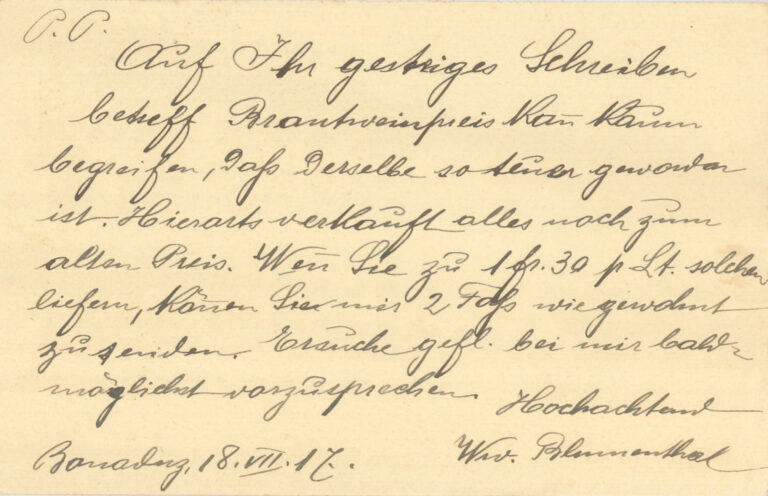 P. P.
Auf Ihr gestriges Schreiben
betreff Brantweinpreis kan̄ kaum
begreifen, daſs derselbe so teuer geworden
ist. Hierorts verkauft alles noch zum
alten Preis. Wen̄ Sie zu 1 fr. 30 p Lt. solchen
liefern, kön̄en Sie mir 2 Faſs wie gewohnt
zu senden. Ersuche gefl. bei mir bald-
möglichst vorzusprechen.
Hochachtend
Ww. Blumenthal
Bonaduz, 18. VII. 17.